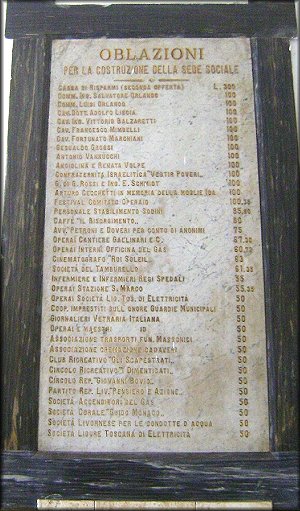 OBLAZIONI
PER LA COSTRUZIONE DELLA SEDE SOCIALE
CASSA DI RISPARMI (SECONDA OFFERTA) L. 300
COMM. ING. SALVATORE ORLANDO 100
COMM. LUIGI ORLANDO 100
CAV. DOTT. ADOLFO LISCIA 100
CAV. ING. VITTORIO BALZARETTI 100
CAV. FRANCESCO MIMBELLI 100
CAV. FORTUNATO MARCHIANI 100
GESUALDO GROSSI 100
ANTONIO VANNUCCHI 100
ANGIOLINA E RENATA VOLPE 100
CONFRATERNITA ISRAELITICA "VESTIR POVERI" 100
G. DI G. ROSSI E ING. E. SCHMIDT 100
ARTURO CECCHETTI IN MEMORIA DELLA MOGLIE IDA 100
FESTIVAL COMITATO OPERAIO
PERSONALE STABILIMENTO SODINI
CAFFÈ "IL RISORGIMENTO" 80
AVV. PETRONI E DOVERI PER CONTO DI ANONIMI 75
OPERAI CANTIERE GALLINARI E C.
OPERAI INTERNI OFFICINA DEL GAS
CINEMATOGRAFO "ROI SOLEIL" 63
SOCIETÀ DEL TAMBURELLO
INFERMIERE E INFERMIERI REGI SPEDALI
OPERAI STAZIONE S. MARCO
OPERAI SOCIETÀ LIG. TOS. DI ELETTRICITÀ 50
COOP. IMPRESTITI SULL'ONORE GUARDIE MUNICIPALI 50
GIORNALIERI VETRARIA ITALIANA 50
OPERAI E MAESTRI ID 50
ASSOCIAZIONE TRASPORTI FUN. MASSONICI 50
ASSOCIAZIONE CREMAZIONE CADAVERI 50
CLUB RICREATIVO "GLI SCAPESTRATI" 50
CIRCOLO RICREATIVO "I DIMENTICATI" 50
CIRCOLO REP. "GIOVANNI BOVIO" 50
PARTITO REP. LIV. "PENSIERO E AZIONE" 50
SOCIETÀ ACCENDITORI DEL GAS 50
SOCIETÀ CORALE "GUIDO MONACO" 50
SOCIETÀ LIVORNESE PER LE CONDOTTE D'ACQUA 50
SOCIETÀ LIGURE TOSCANA DI ELETTRICITÀ 50